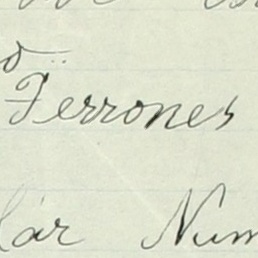 Ferrones
lar Num